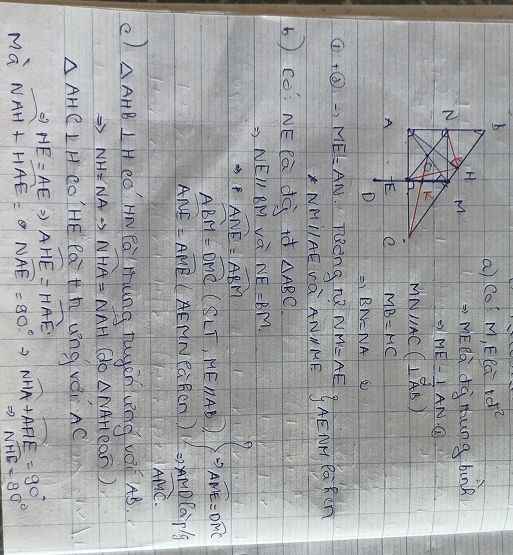 a) Có M, E là tđ
⇒ ME là đg trung bình
⇒ ME = ½ AN ①
MN // AC (⊥ AB)
MB = MC
⇒ BN = NA ②
① + ② ⇒ ME = AN. Tương tự NM = AE
* NM // AE và AN // ME
} AENM là hcn
b) Có: NE là đg tb △ABC
⇒ NE // BM và NE = BM
⇒ ANE = ABM
ABM = DMC (SLT, ME // AB)
ANE = AME (AEMN là hcn)
} ⇒ AME = DMC
⇒ AMD là p/g AMC.
c) △AHB ⊥ H có HN là trung tuyến ứng với AB.
⇒ NH = NA ⇒ NHA = NAH do △NAH cân)
△AHC ⊥ H có HE là tt ứng với AC
⇒ HE = AE ⇒ AHE = HAE.
Mà NAH + HAE = NAE = 90° ⇒ NHA + AHE = 90°
⇒ NHE = 90°
B
N
H
M
A
E
K
C
D